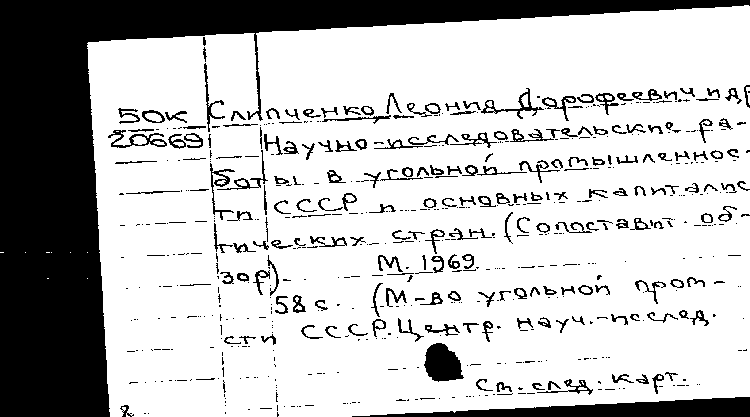 50К Слипченко, Леонид Дорофеевич и др
20669 Научно-исследовательские ра-
боты в угольной промышленнос-
ти СССР и основных капиталис
тических стран. (Сопоставит. об-
зор). М., 1969
58 с. (М-во угольной пром-
сти СССР. Центр. науч.-исслед.
См. след. карт.